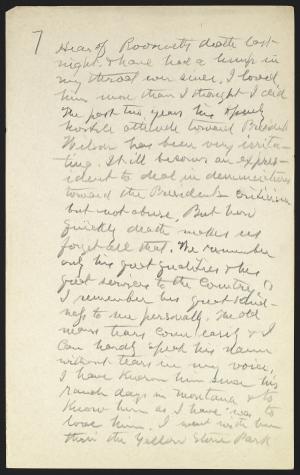 7 Hear of Roosevelts death last
night. & have had a lump in
my throat ever since. I loved
him more than I thought I did
The past two years his openly
hostile attitude toward President
Wilson has been very irrita-
ting. It ill becomes an ex presi-
dent to deal in denunciations
toward the President. Criticism
but not abuse. But how
quickly death makes us
forget all that. We remember
only his great qualities & his
great services to the Country.
I remember his great kind-
ness to me personally. The old
mans tears come easily & I
Can hardly speak his name
without tears in my voice.
I have Known him since his
ranch days in Montana & to
Know him as I have was to
love him. I went with him
thru the Yellow Stone Park